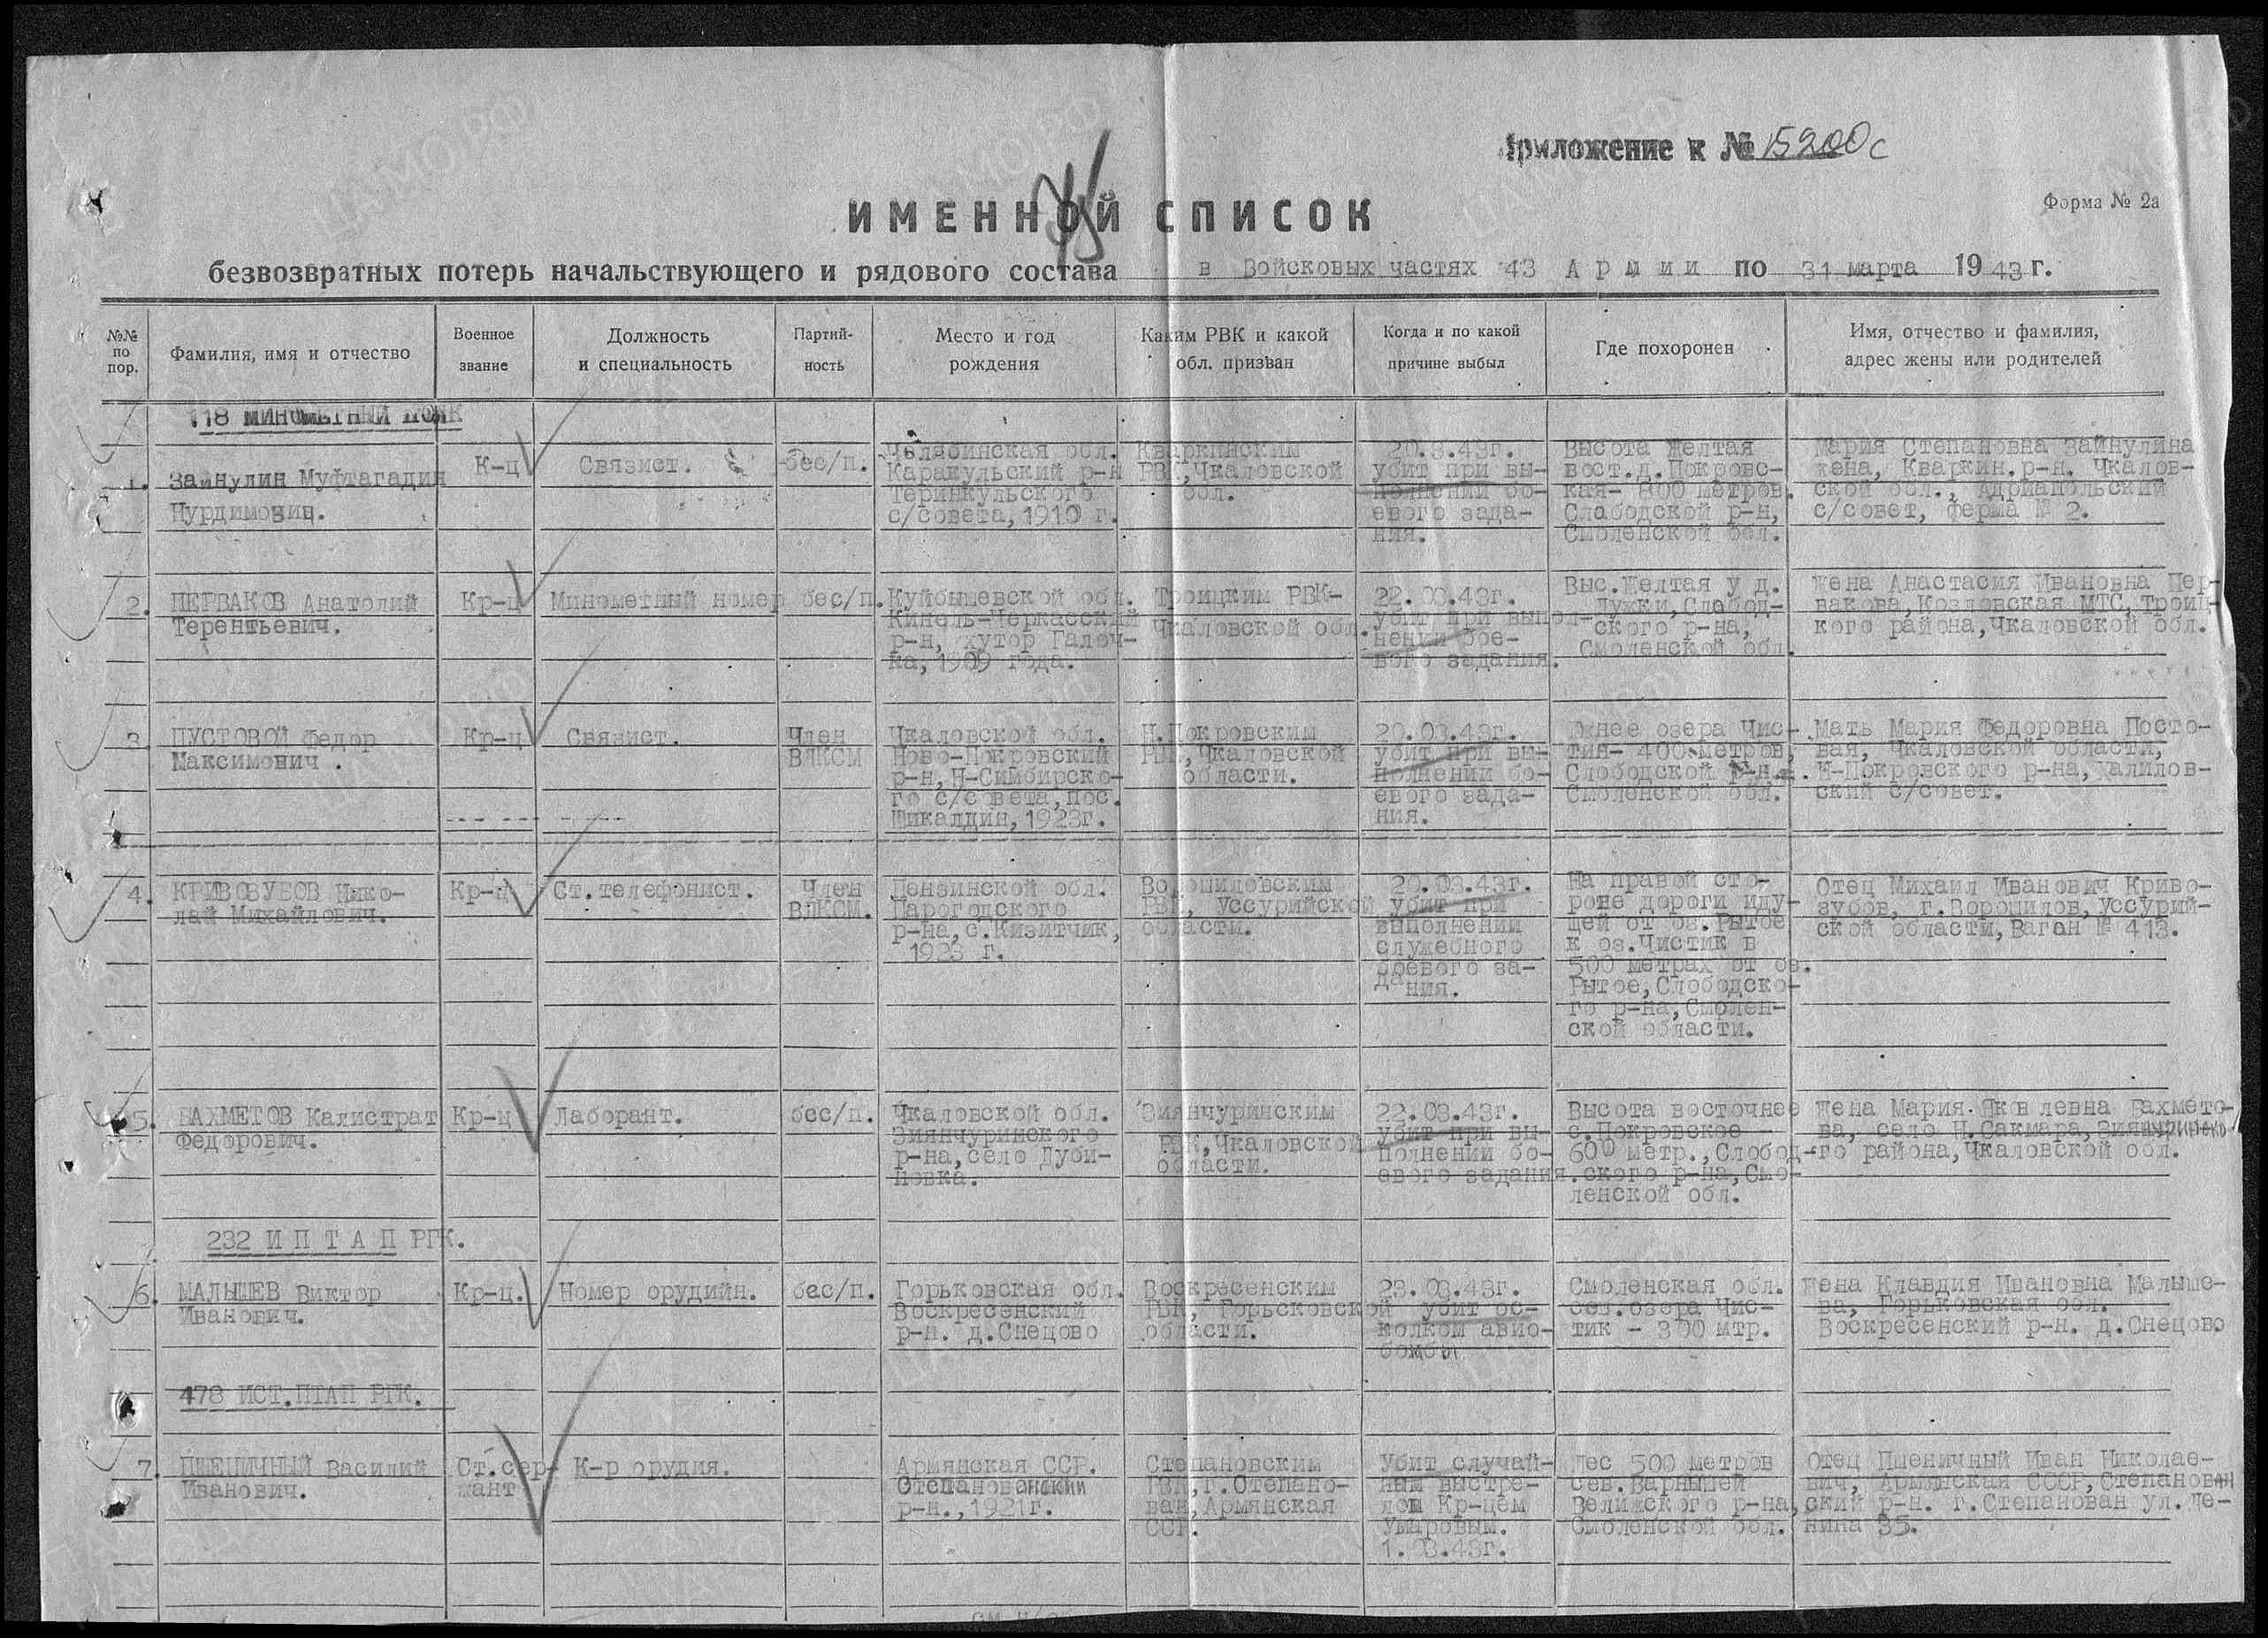 Приложение к № 15200с
ИМЕННОЙ СПИСОК
Форма № 2а
безвозвратных потерь начальствующего и рядового состава в Войсковых частях 43 Армии по 31 марта 1943 г.
№№ по пор.
Фамилия, имя и отчество
Военное звание
Должность и специальность
Партий-ность
Место и год рождения
Каким РВК и какой обл. призван
Когда и по какой причине выбыл
Где похоронен
Имя, отчество и фамилия, адрес жены или родителей
118 МИНОМЕТНЫЙ ПОЛК
1.
Зайнулин Муфтагадин
Нурдимович.
К-ц
Связист.
бес/п.
Челябинская обл.
Каракульский р-н
Теринкульского
с/совета, 1910 г.
Кваркинским
РВК, Чкаловской
обл.
20.3.43г.
убит при вы-
полнении бо-
евого зада-
ния.
Высота Желтая
вост.д.Покровс-
кая- 800 метров.
Слободской р-н,
Смоленской обл.
Мария Степановна Зайнулина
жена, Кваркин.р-н. Чкалов-
ской обл., Адрианольский
с/совет, ферма № 2.
2.
ПЕРВАКОВ Анатолий
Терентьевич.
Кр-ц
Минометный номер
бес/п.
Куйбышевской обл.
Кинель-Черкасский
р-н, хутор Галоч-
ка, 1909 года.
Троицким РВК-
Чкаловской обл.
22.03.43г.
убит при выпол-
нении бое-
вого задания.
Выс.Желтая у д.
Лужки, Слобод-
ского р-на,
Смоленской обл.
Жена Анастасия Ивановна Пер-
вакова, Козловская МТС, Троиц-
кого района, Чкаловской обл.
3.
ПУСТОВОЙ Федор
Максимонич .
Кр-ц
Связист.
Член
ВЛКСМ
Чкаловской обл.
Ново-Покровский
р-н, Н-Симбирско-
го с/совета, пос.
Шикалдин, 1923г.
Н.Покровским
РВК, Чкаловской
области.
20.03.43г.
убит при вы-
полнении бо-
евого зада-
ния.
Южнее озера Чис-
тик- 400 метров,
Слободской р-н.
Смоленской обл.
Мать Мария Федоровна Посто-
вая, Чкаловской области,
Н-Покровского р-на, Халилов-
ский с/совет.
4.
КРИВОЗУБОВ Нико-
лай Михайлович.
Кр-ц
Ст.телефонист.
Член
ВЛКСМ.
Пензинской обл.
Парогодского
р-на, с.Кизитчик,
1923 г.
Ворошиловским
РВК, Уссурийской
области.
20.03.43г.
убит при
выполнении
служебного
боевого за-
дания.
На правой сто-
роне дороги иду-
щей от оз.Рытое
к оз.Чистик в
500 метрах от оз.
Рытое, Слободско-
го р-на, Смолен-
ской области.
Отец Михаил Иванович Криво-
зубов, г.Ворошилов, Уссурий-
ской области, Вагон № 413.
5.
БАХМЕТОВ Калистрат
Федорович.
Кр-ц
Лаборант.
бес/п.
Чкаловской обл.
Зиянчуринского
р-на, село Дуби-
новка.
Зиянчуринским
РВК, Чкаловской
области.
22.03.43г.
убит при вы-
полнении бо-
евого задания.
Высота восточнее
с.Покровское -
600 метр., Слобод-
ского р-на, Смо-
ленской обл.
Жена Мария Яковлевна Бахмето-
ва, село Н.Сакмара, Зиянчуринско-
го района, Чкаловской обл.
232 И П Т А П РГК.
6.
МАЛЫШЕВ Виктор
Иванович.
Кр-ц.
Номер орудийн.
бес/п.
Горьковская обл.
Воскресенский
р-н. д.Снецово
Воскресенским
РВК, Горьсковской
области.
23.03.43г.
убит ос-
колком авио-
бомбы
Смоленская обл.
сев.озера Чис-
тик - 300 мтр.
Жена Клавдия Ивановна Малыше-
ва, Горьковская обл.
Воскресенский р-н. д.Снецово
478 ИСТ.ПТАП РГК.
7.
ПШЕНИЧНЫЙ Василий
Иванович.
Ст.сер-
жант
К-р орудия.
Армянская ССР.
Степанованский
р-н., 1921г.
Степановским
РВК, г.Степано-
ван, Армянская
ССР.
Убит случай-
ным выстре-
лом Кр-цем
Умаровым.
1.03.43г.
Лес 500 метров
сев.Варнышей
Велижского р-на,
Смоленской обл.
Отец Пшеничный Иван Николае-
вич, Армянская СССР, Степанован
ский р-н. г.Степанован ул.Ле-
нина 35.